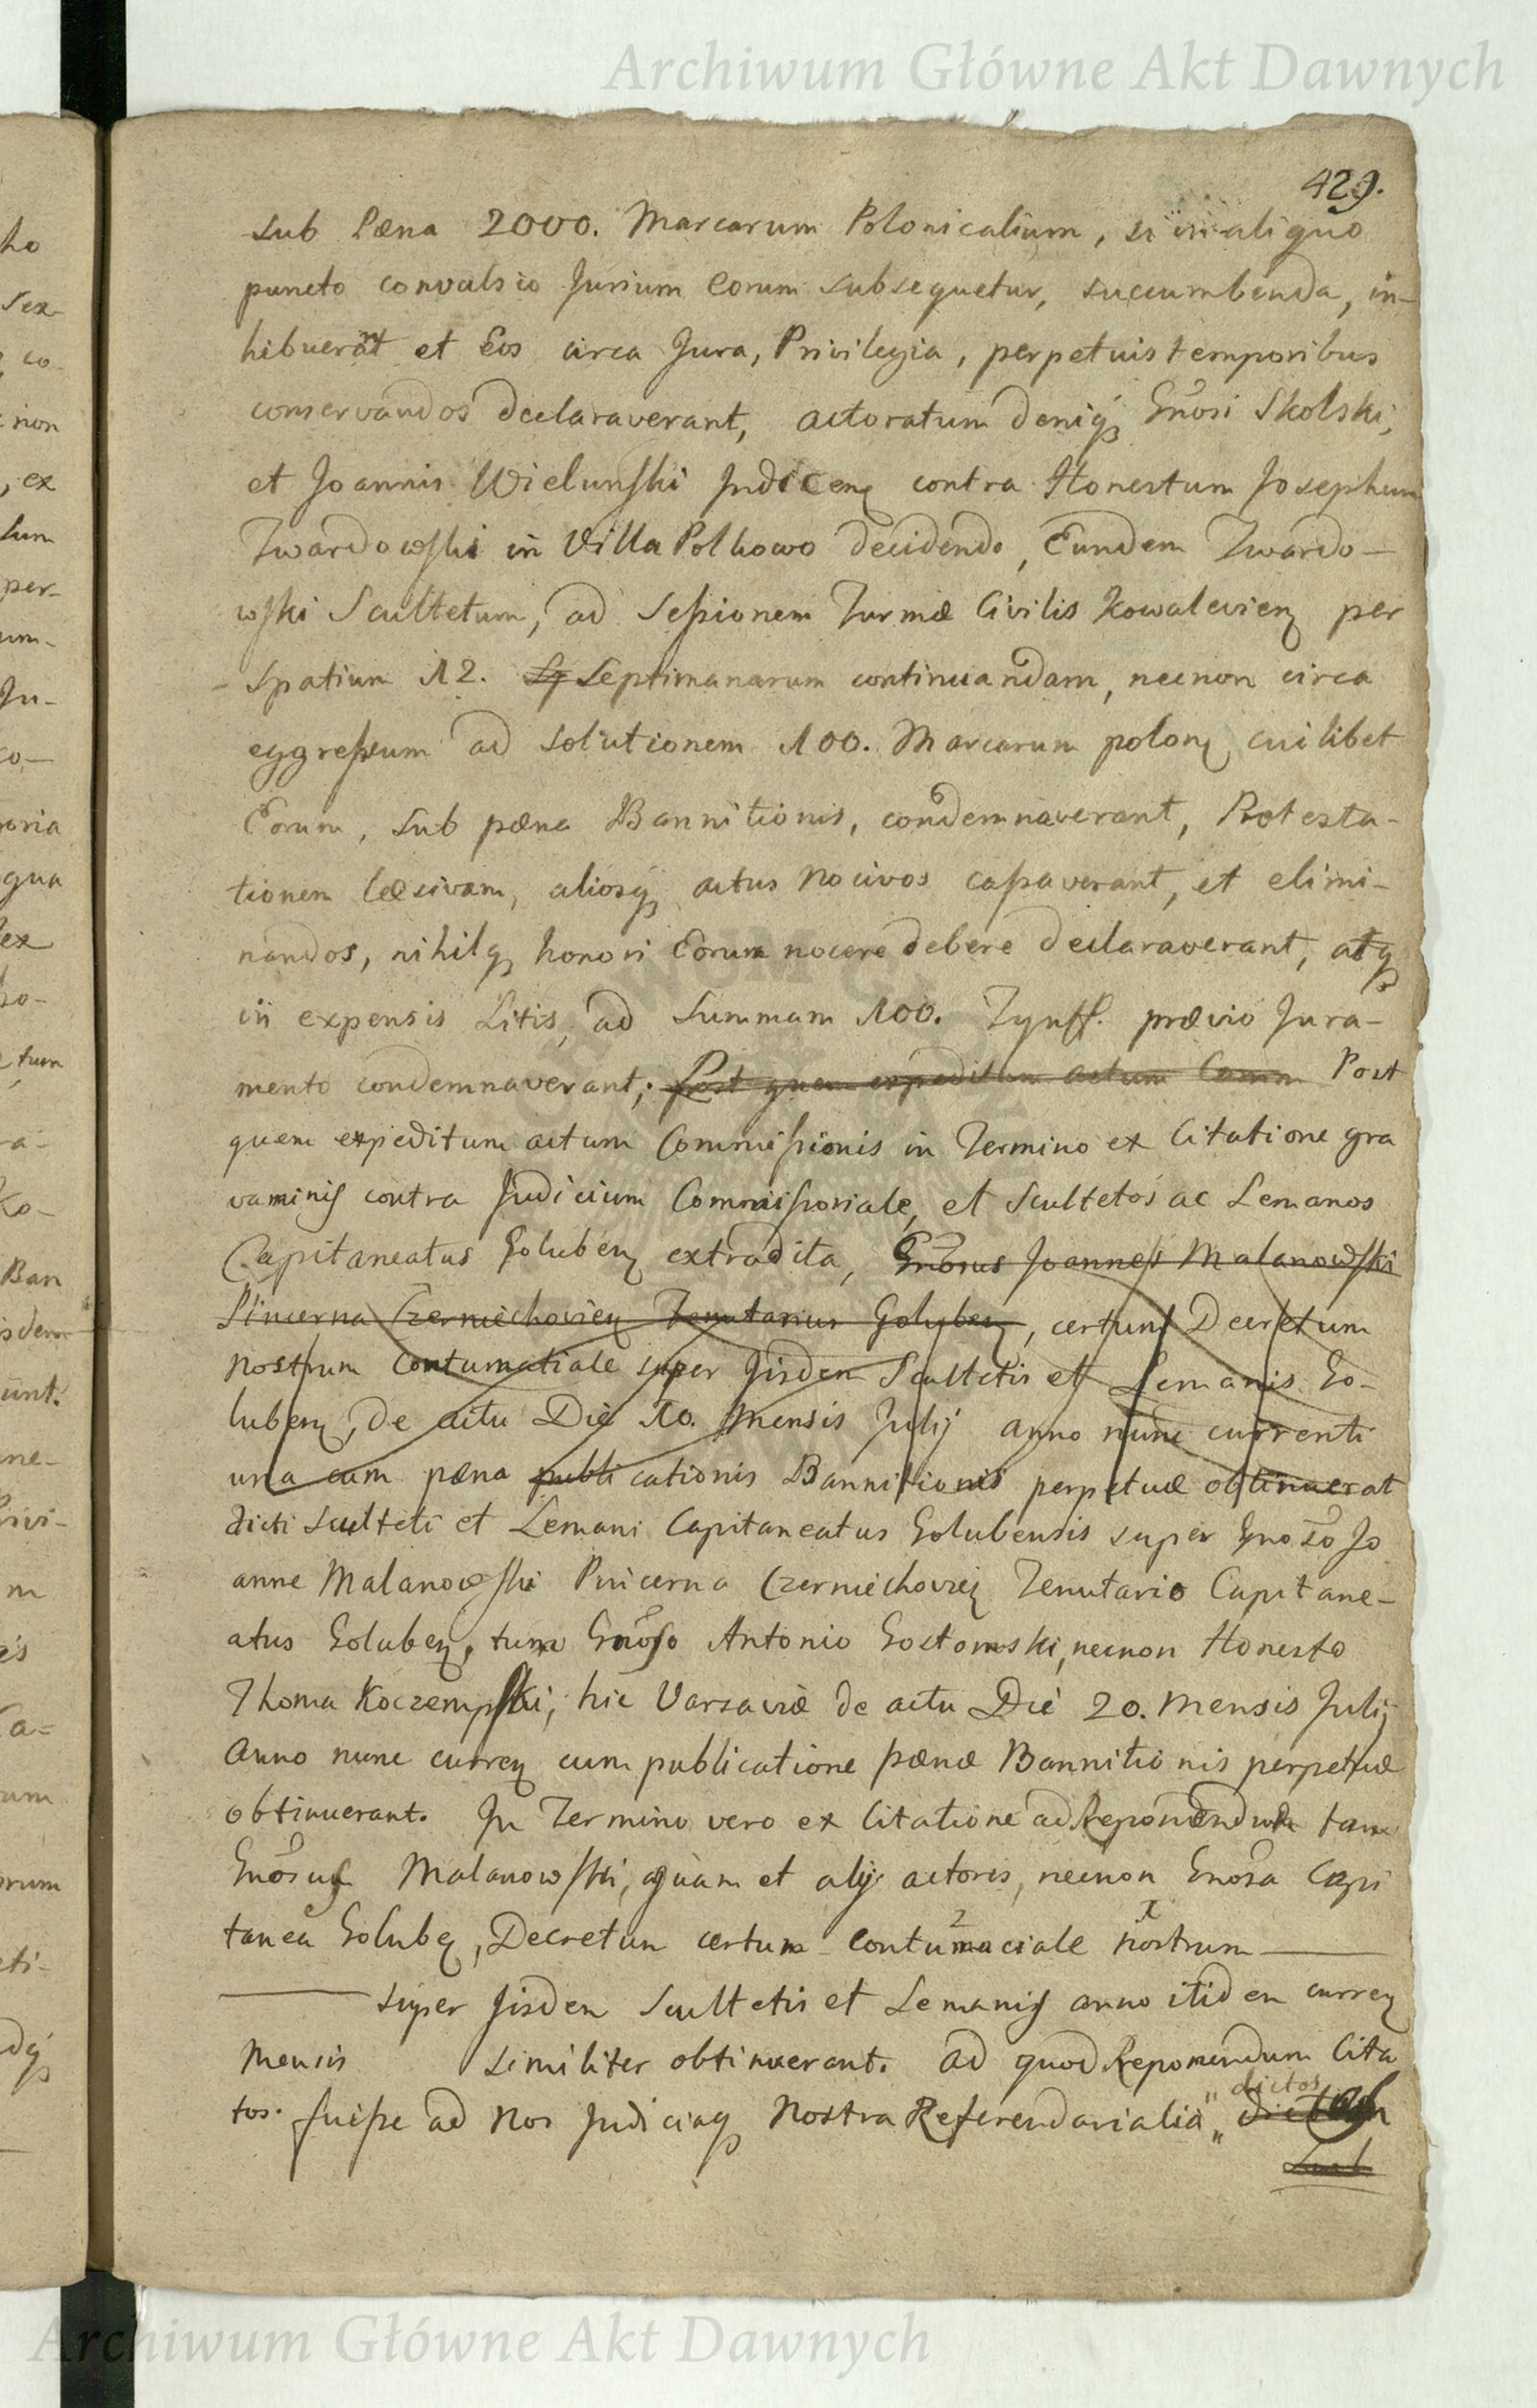 Archiwum Główne Akt Dawnych
429.
sub Pæna 2000. Marcarum Polonicalium, si in aliquo
puncto convulsio Jurium Eorum subsequetur, succumbenda, in-
hibuerant et Eos circa Jura, Privilegia, perpetuis temporibus
conservandos declaraverant, actoratum deniq Gnosi Skolski,
et Joannis Wielunski Judicenꝫ contra Honestum Josephum
Twardowski in Villa Polkowo decidendo, Eundem Twardo-
wski Scultetum, ad Sessionem Turmæ Civilis Kowalevienꝫ per
spatium 12. Sq Septimanarum continuandam, necnon circa
eggressum ad solutionem 100. Marcarum polonꝫ cuilibet
Eorum, sub pæna Bannitionis, condemnaverant, Protesta-
tionem læsivam, aliosq actus nocivos cassaverant, et elimi-
nandos, nihilq honori Eorum nocere debere declaraverant, atq
in expensis Litis, ad Summam 100. Tynff. prævio Jura-
mento condemnaverant; Post quem expeditum actum Comm Post
quem expeditum actum Commissionis in Termino ex Citatione gra
vaminis contra Judicium Commissoriale, et Scultetos ac Lemanos
Capitaneatus Golubenꝫ extradita, Gnosus Joannes Malanowski
Pincerna Czerniechovienꝫ Tenutarius Golubenꝫ, certum Decretum
nostrum Contumatiale super Jisdem Scultetis et Lemanis Go-
lubenꝫ, de actu Die 10. Mensis Julij anno nunc currenti
una cum pæna publicationis Bannitionis perpetuæ obtinuerat
dicti Sculteti et Lemani Capitaneatus Golubensis super Gnoso Jo
anne Malanowski Pincerna Czerniechovienꝫ Tenutario Capitane-
atus Golubenꝫ, tum Gnoso Antonio Gostomski, necnon Honesto
Thoma Koczempski, hic Varsaviæ de actu Die 20. Mensis Julij
Anno nunc currenꝫ cum publicatione pænæ Bannitionis perpetuæ
obtinuerant. In Termino vero ex Citatione ad Reponendum tam
Gnosus Malanowski, quam et alij actores, necnon Gnosa Capi
tanea Golubenꝫ, Decretum certum 2 Contumaciale x nostrum
super Jisdem Scultetis et Lemanis anno itidem currenꝫ
Mensis similiter obtinuerant. ad quod Reponendum Cita
tos. fuisse ad Nos Judiciaq Nostra Referendarialia „ dictos
Archiwum Główne Akt Dawnych